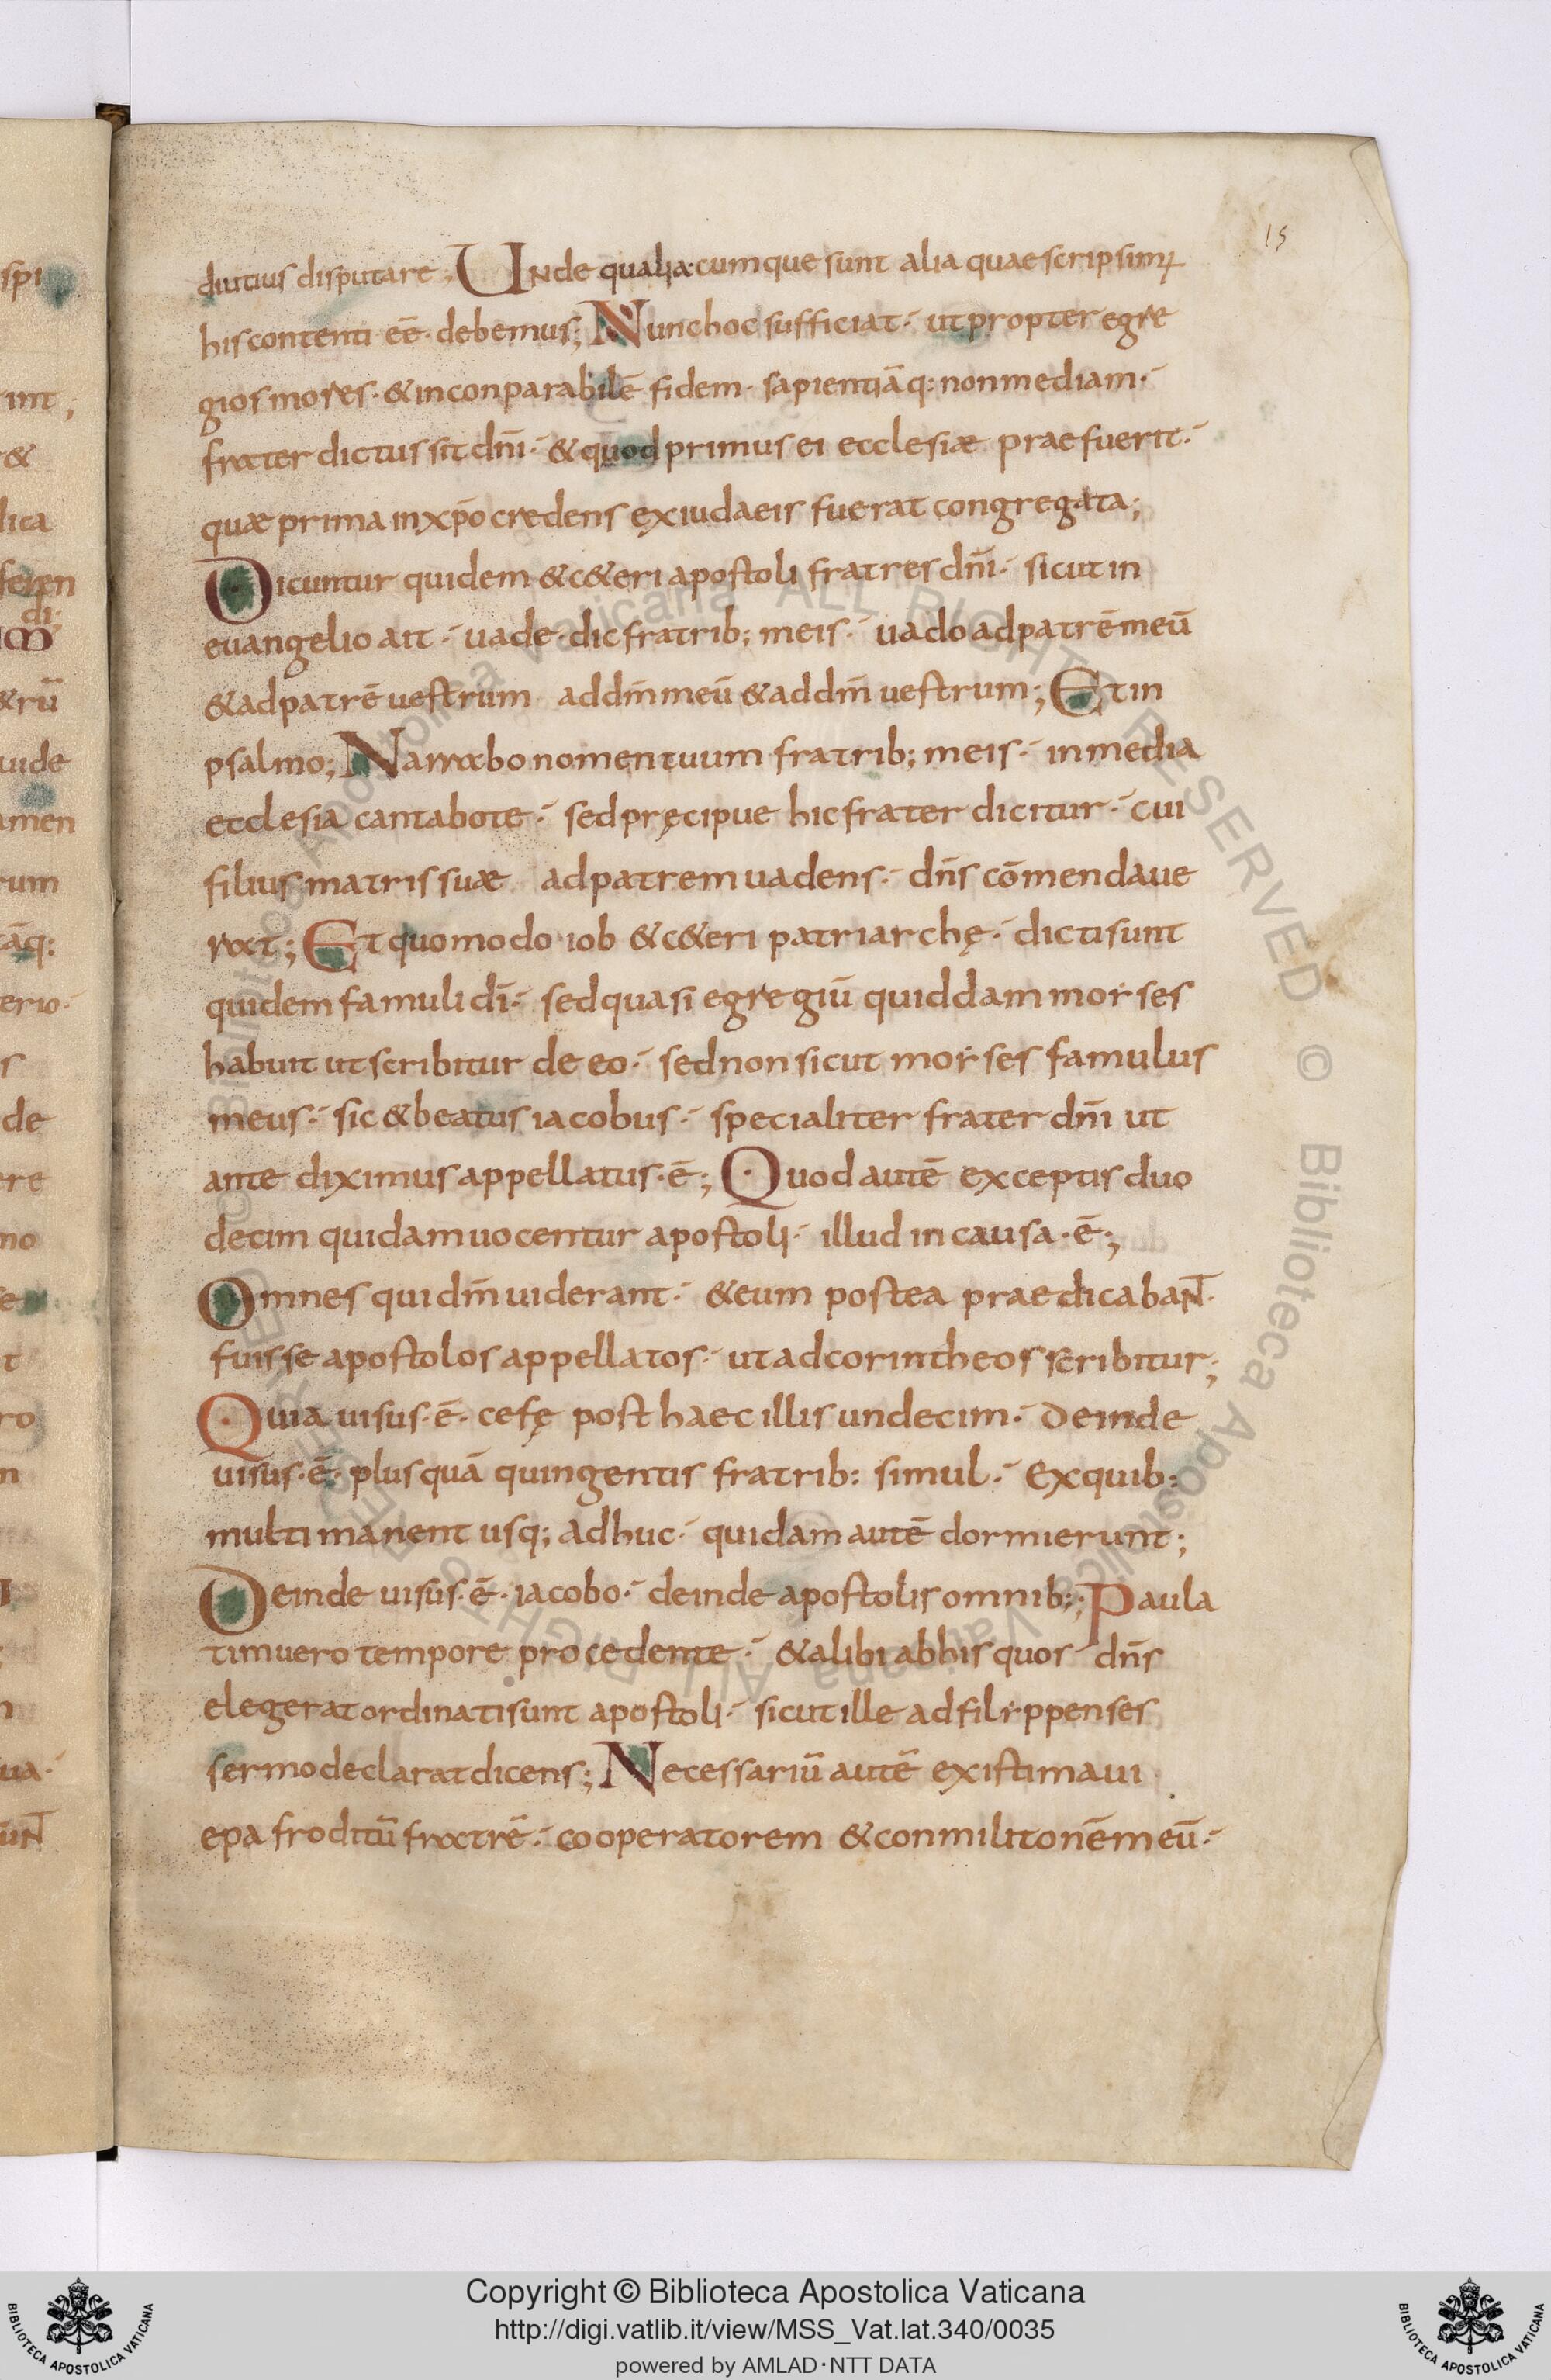 15
diutius disputare; Unde qualia·cumque sunt alia quae scripsim⁊
his contenti eē· debemus; Nunc hoc sufficiat·̄ ut propter egre
gios mores· & inconparabilē fidem· sapientiāq: non mediam·̄
frater dictus sit dn̄i·̄ & quod primus ei ecclesiæ prae fuerit·̄
quæ prima in xp̄o credens ex iudaeis fuerat congregata;
Dicuntur quidem & c&eri apostoli fratres dn̄i·̄ sicut in
euangelio ait·̄ uade· dic fratrib; meis·̄ uado ad patrē meū
& ad patrē uestrum addm̄ meū & addm̄ uestrum; Et in
psalmo; Narrabo nomen tuum fratrib; meis·̄ in media
ecclesia cantabo te·̄ sed pręcipue hic frater dicitur·̄ cui
filius matris suæ ad patrem uadens·̄ dn̄s cōmendaue
rat; Et quomodo iob & c&eri patriarchę·̄ dicti sunt
quidem famuli dī·̄ sed quasi egregiū quiddam moẏses
habuit ut scribitur de eo·̄ sed non sicut moẏses famulus
meus·̄ sic & beatus iacobus·̄ specialiter frater dn̄i ut
ante diximus appellatus·ē; Quod autē exceptis duo
decim quidam uocentur apostoli·̄ illud in causa·ē;
Omnes qui dm̄ uiderant·̄ & eum postea praedicabaN̄T·
fuisse apostolos appellatos·̄ ut ad corintheos scribitur;
Quia uisus·ē· cefę post haec illis undecim· deinde
uisus·ē· plus quā quingentis fratrib: simul·̄ Ex quib:
multi manent usq; adhuc·̄ quidam autē dormierunt;
Deinde uisus·ē· iacobo·̄ deinde apostolis omnib:; Paula
tim uero tempore procedente·̄ & alibi ab his quos dn̄s
elegerat ordinati sunt apostoli·̄ sicut ille ad filippenses
sermo declarat dicens; Necessariū autē existimaui
epafroditū fratrē·̄ cooperatorem & conmilitonē meū·̄
Copyright © Biblioteca Apostolica Vaticana
http://digi.vatlib.it/view/MSS_Vat.lat.340/0035
powered by AMLAD·NTT DATA
BIBLIOTECA APOSTOLICA VATICANA
BIBLIOTECA APOSTOLICA VATICANA